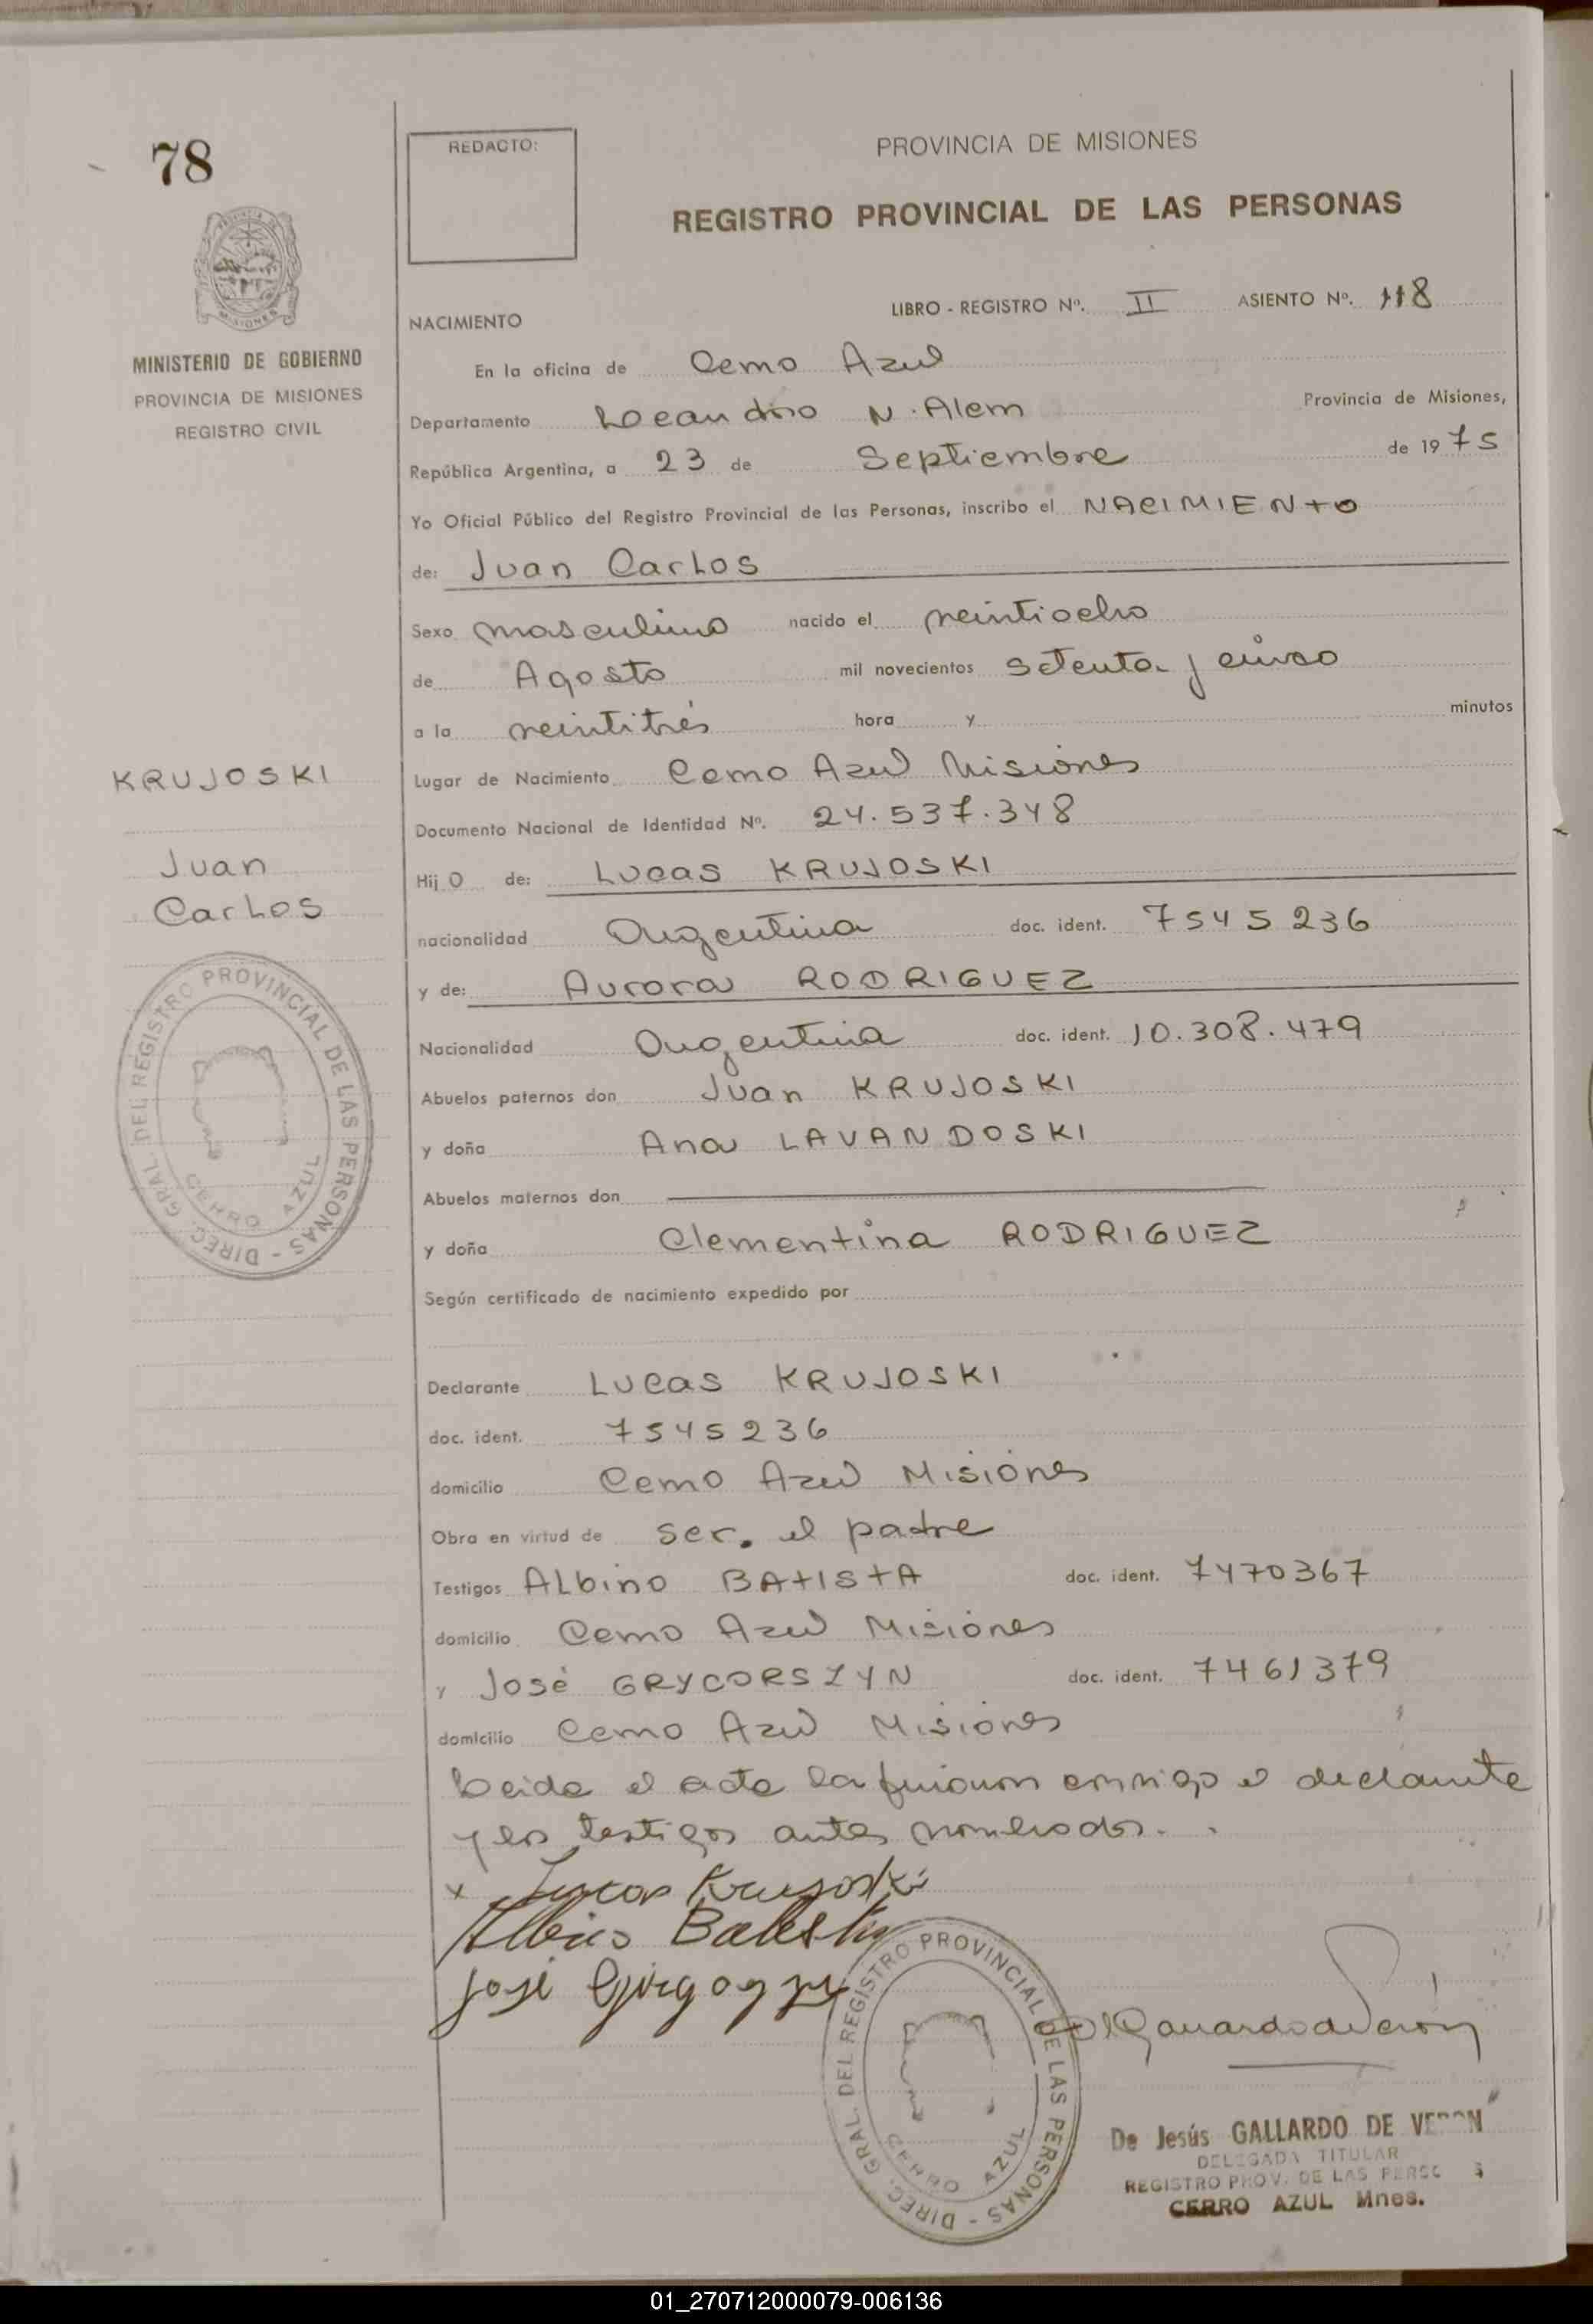 78
REDACTO:
PROVINCIA DE MISIONES
REGISTRO PROVINCIAL DE LAS PERSONAS
MINISTERIO DE GOBIERNO
PROVINCIA DE MISIONES
REGISTRO CIVIL
NACIMIENTO
LIBRO - REGISTRO Nº. II ASIENTO Nº. 118
En la oficina de Cerro Azul
Departamento Leandro N. Alem Provincia de Misiones,
República Argentina, a 23 de Septiembre de 1975
Yo Oficial Público del Registro Provincial de las Personas, inscribo el NACIMIENTO
de: Juan Carlos
Sexo masculino nacido el veintiocho
de Agosto mil novecientos setenta y cinco
a la veintitrés hora y minutos
KRUJOSKI
Juan
Carlos
Lugar de Nacimiento Cerro Azul Misiones
Documento Nacional de Identidad Nº. 24.537.348
Hij o de: Lucas KRUJOSKI
nacionalidad Argentina doc. ident. 7545236
y de: Aurora RODRIGUEZ
Nacionalidad Argentina doc. ident. 10.308.479
Abuelos paternos don Juan KRUJOSKI
y doña Ana LAVANDOSKI
Abuelos maternos don
y doña Clementina RODRIGUEZ
Según certificado de nacimiento expedido por
DIREC. GRAL. DEL REGISTRO PROVINCIAL DE LAS PERSONAS -
CERRO AZUL
Declarante Lucas KRUJOSKI
doc. ident. 7545236
domicilio Cerro Azul Misiones
Obra en virtud de ser. el padre
Testigos Albino BATISTA doc. ident. 7470367
domicilio Cerro Azul Misiones
y José GRYCORSZYN doc. ident. 7461379
domicilio Cerro Azul Misiones
Leida el acta la firman conmigo el declarante
y los testigos antes nombrados.
x Lucas Krujoski
Albino
José
DIREC. GRAL. DEL REGISTRO PROVINCIAL DE LAS PERSONAS -
CERRO AZUL
De Jesús GALLARDO DE VERON
DELEGADA TITULAR
REGISTRO PROV. DE LAS PERSO S
CERRO AZUL Mnes.
01_270712000079-006136